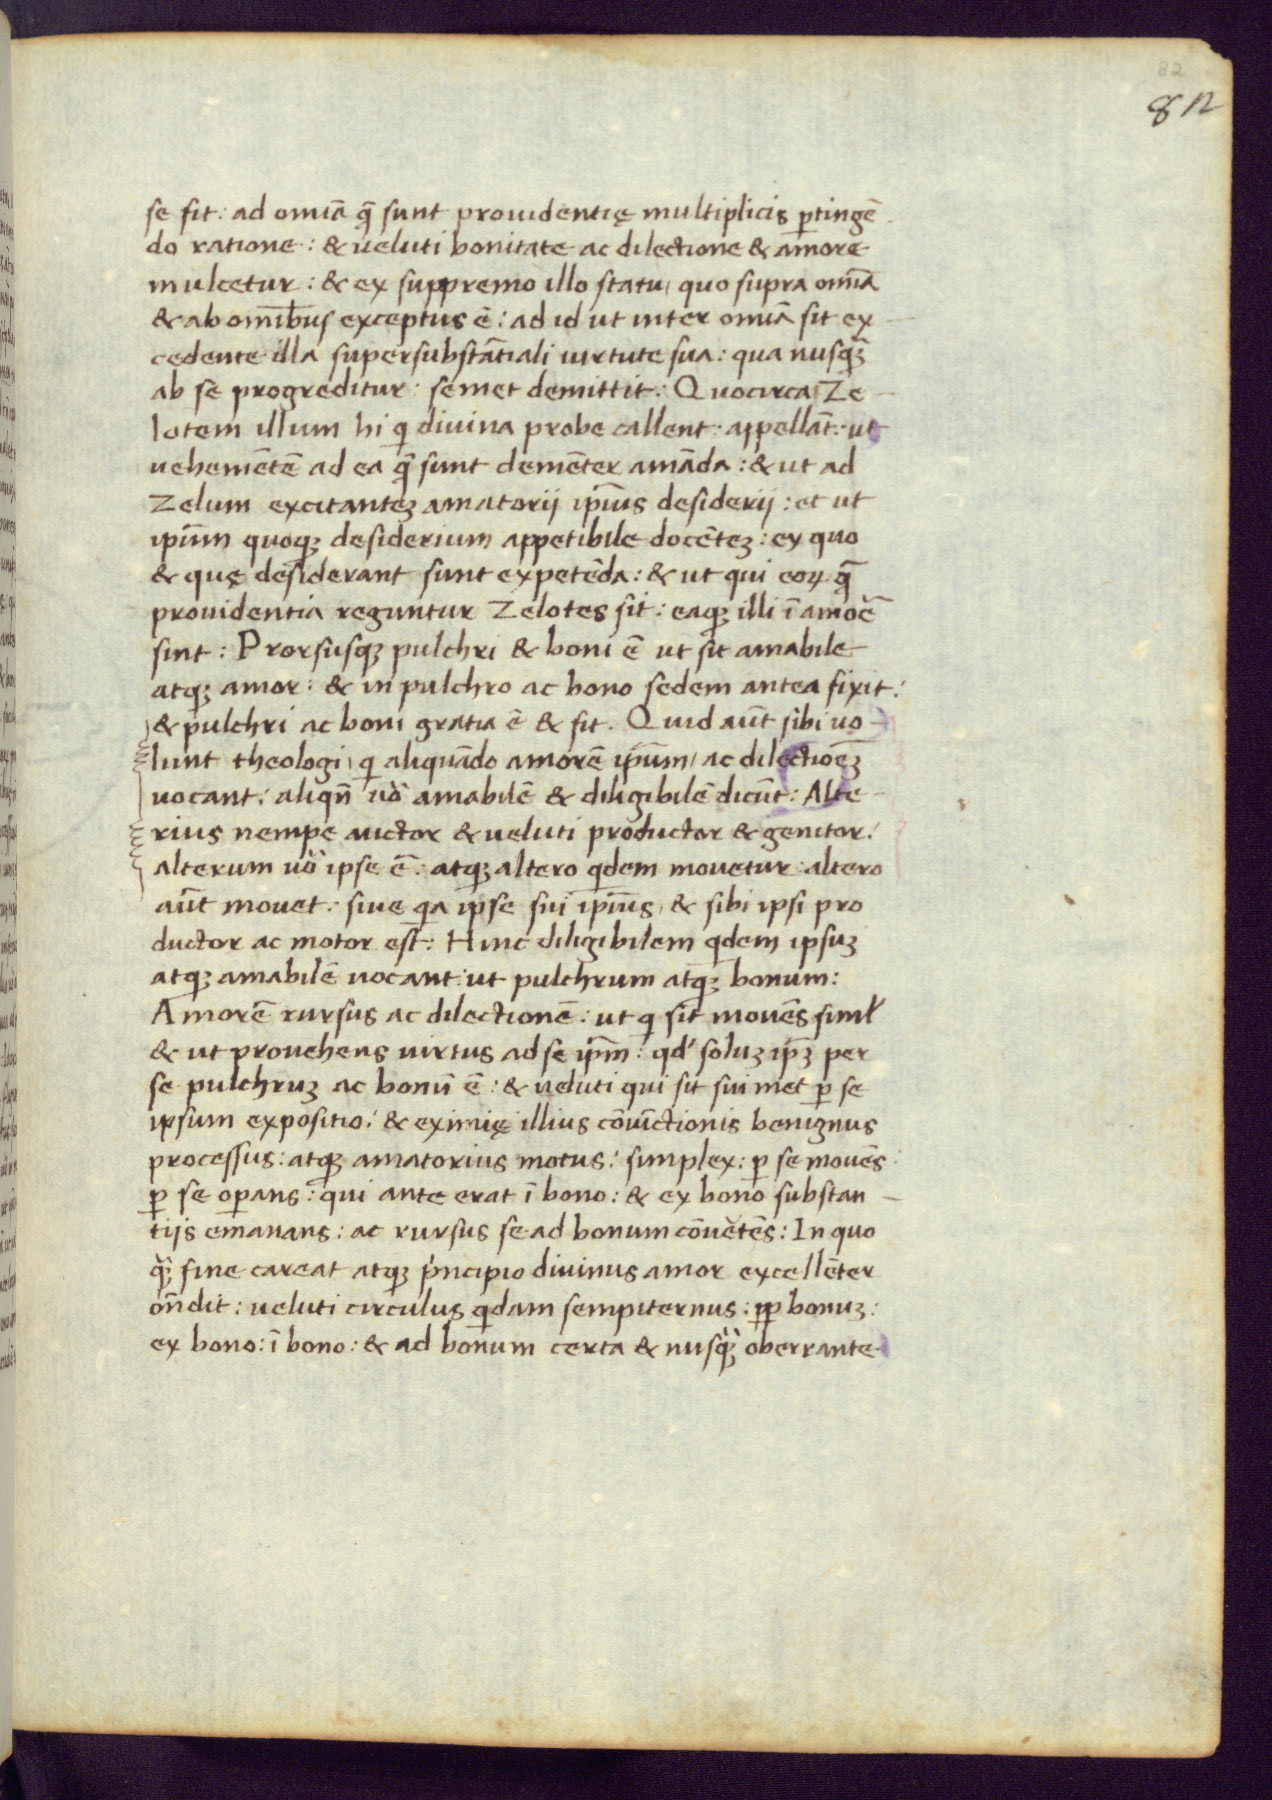 82
82
se fit: ad omĩa q̃ sunt prouidentię multiplicis ꝑtingẽ
do ratione: & ueluti bonitate ac dilectione & amore
mulcetur: & ex suppremo illo statu, quo supra omĩa
& ab omĩbus exceptus ẽ: ad id ut inter omĩa sit ex
cedente illa supersubstãtiali uirtute sua: qua nusqꝫ̃
ab se progreditur: semet demittit: Quocirca Ze
lotem illum hi q diuina probe callent: appellãt: ut
uehemẽtẽ ad ea q̃ sunt clemẽter amãda: & ut ad
Zelum excitanteꝫ amatorij ip̃ius desiderij: et ut
ip̃um quoqꝫ desiderium appetibile docẽteꝫ: ex quo
& quę desiderant sunt expetẽda: & ut qui eoꝝ q̃
prouidentia reguntur Zelotes sit: eaqꝫ illi ĩ amoẽ
sint: Prorsusqꝫ pulchri & boni ẽ ut sit amabile
atqꝫ amor: & in pulchro ac bono sedem antea fixit:
& pulchri ac boni gratia ẽ & fit. Quid aũt sibi uo
lunt theologi, q aliquãdo amorẽ ip̃um, ac dilectioẽꝫ
uocant: aliqñ uo᷒ amabilẽ & diligibilẽ dicũt: Alte
rius nempe auctor & ueluti productor & genitor:
alterum uo᷒ ipse ẽ: atqꝫ altero qdem mouetur: altero
aũt mouet: siue qa ipse sui ip̃ius, & sibi ipsi pro
ductor ac motor est: Hinc diligibilem qdem ipsuꝫ
atqꝫ amabilẽ uocant: ut pulchrum atqꝫ bonum:
Amorẽ rursus ac dilectionẽ: ut q sit mouẽs simł
& ut prouehens uirtus ad se ip̃m: qd' soluꝫ ip̃ꝫ per
se pulchruꝫ ac bonũ ẽ: & ueluti qui sit sui met ꝑ se
ipsum expositio: & eximię illius cõiũctionis benignus
processus: atqꝫ amatorius motus: simplex: ꝑ se mouẽs:
ꝑ se oꝑans: qui ante erat ĩ bono: & ex bono substan
tijs emanans: ac rursus se ad bonum cõuẽtẽs: In quo
qꝫ̃ fine careat atqꝫ p'ncipio diuinus amor excellẽter
oñdit: ueluti circulus qdam sempiternus: ꝓp bonuꝫ:
ex bono: ĩ bono: & ad bonum certa & nusqꝫ̃ oberrante